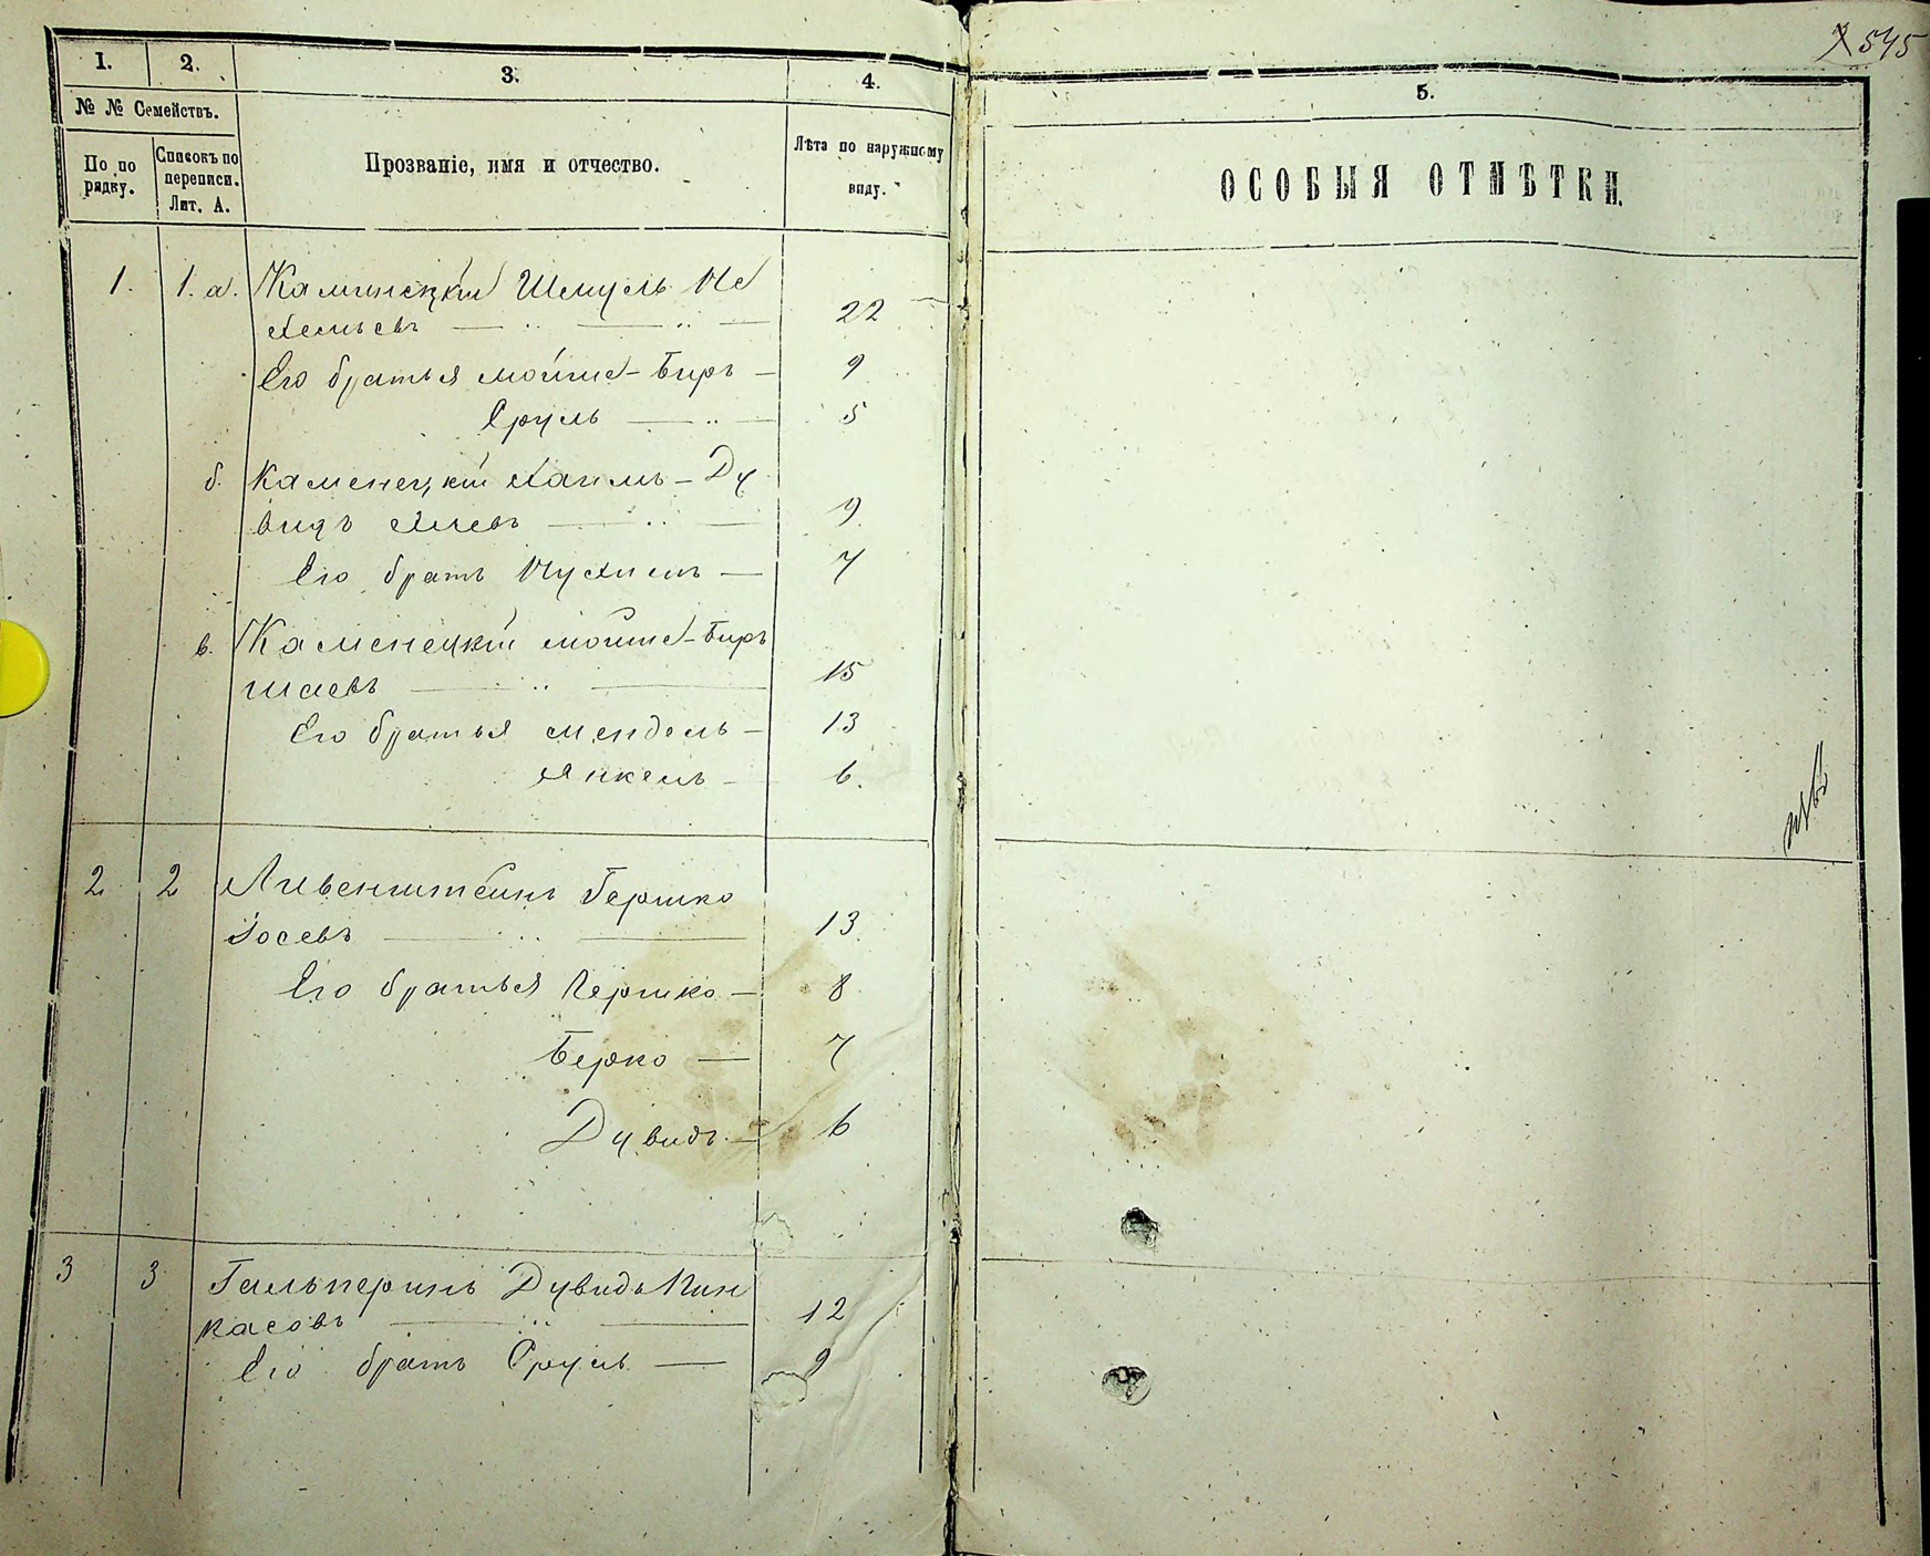 545
1.
2.
3.
4.
5.
№ № Семействъ.
По по
рядку.
Списокъ по
переписи.
Лит. А.
Прозваніе, имя и отчество.
Лѣта по наружному
виду.
ОСОБЫЯ ОТМѢТКИ.
1. 1. а. Каминецкій Шемуель Ме
хелевъ 22
Его братья Мойше-Биръ - 9
Сруль 5
б. Каменецкій Хаимъ-Ду
видъ 9
Его братъ Нухимъ 7
в. Каменецкій Мойше-Биръ
Шаевъ 15
Его братья Мендель - 13
Янкель - 6.
2 2 Ливенштейнъ Гершко
Іосевъ 13
Его братья 8
Берко - 7
Дувидъ - 6
3 3 Гальперинъ Дувидъ Пин
касовъ 12
Его братъ Сруль - 9